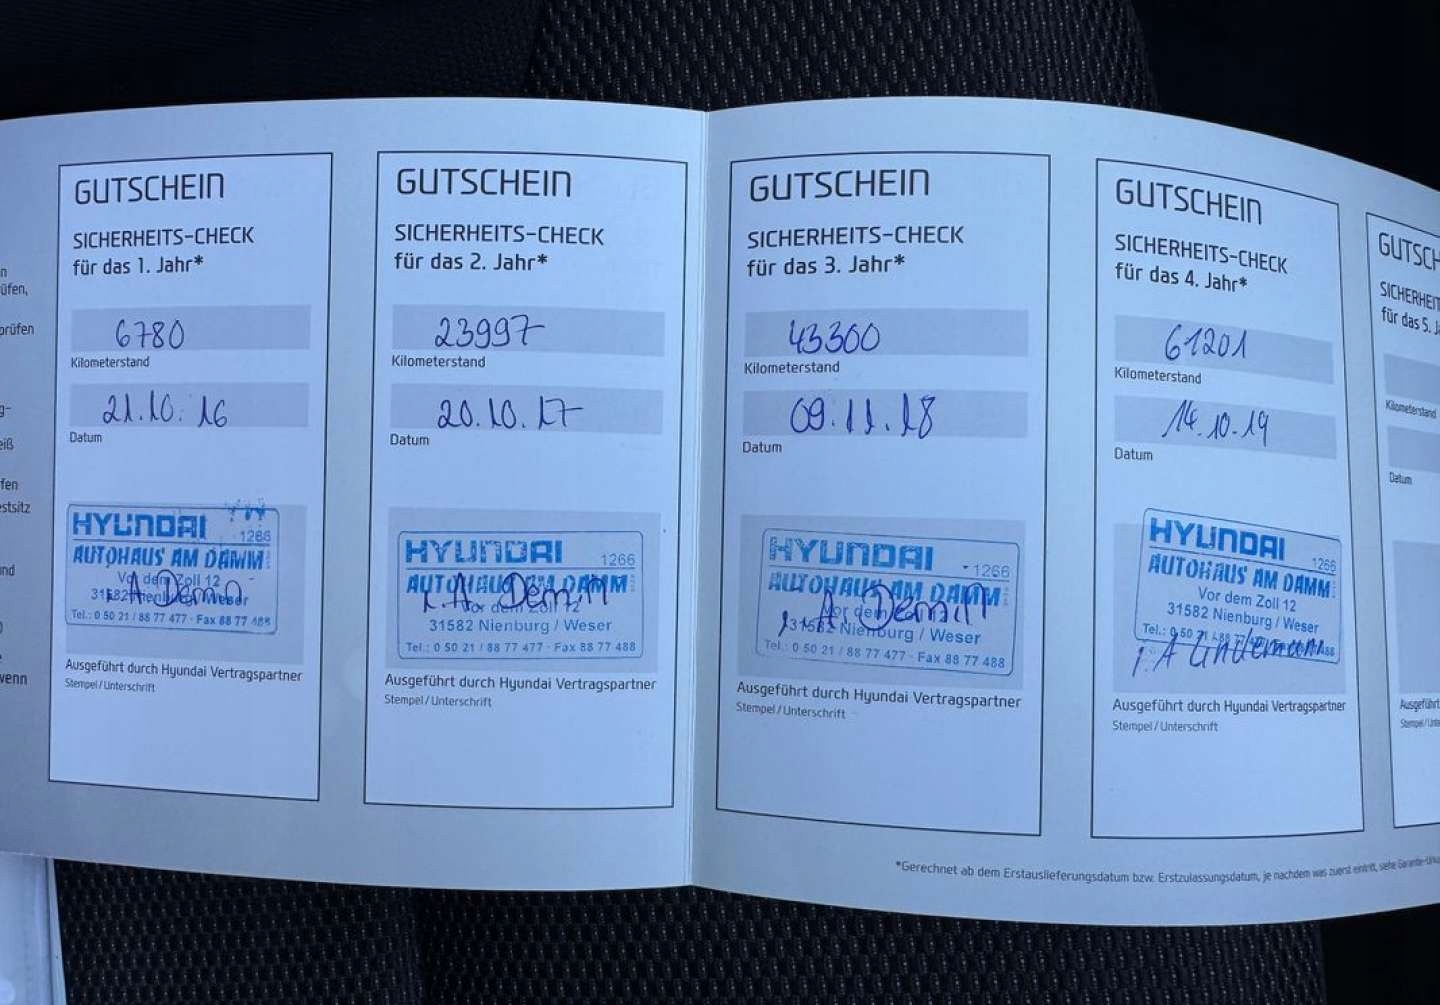 n
üfen,
prüfen
g-
eiß
fen
estsitz
nd
wenn
GUTSCHEIN
SICHERHEITS-CHECK
für das 1. Jahr*
6780
Kilometerstand
21.10.16
Datum
HYUNDAI
1266
AUTOHAUS AM DAMM
Vor dem Zoll 12
31582 Nienburg/Weser
Tel.: 0 50 21 / 88 77 477 · Fax 88 77 488
Ausgeführt durch Hyundai Vertragspartner
Stempel/Unterschrift
GUTSCHEIN
SICHERHEITS-CHECK
für das 2. Jahr*
23997
Kilometerstand
20.10.17
Datum
HYUNDAI
1266
AUTOHAUS AM DAMM
Vor dem Zoll 12
31582 Nienburg / Weser
Tel.: 0 50 21 / 88 77 477 · Fax 88 77 488
Ausgeführt durch Hyundai Vertragspartner
Stempel/Unterschrift
GUTSCHEIN
SICHERHEITS-CHECK
für das 3. Jahr*
43300
Kilometerstand
09.11.18
Datum
HYUNDAI
1266
AUTOHAUS AM DAMM
Vor dem
31582 Nienburg / Weser
Tel.: 0 50 21 / 88 77 477 · Fax 88 77 488
Ausgeführt durch Hyundai Vertragspartner
Stempel/Unterschrift
GUTSCHEIN
SICHERHEITS-CHECK
für das 4. Jahr*
61201
Kilometerstand
14.10.19
Datum
HYUNDAI
1266
AUTOHAUS AM DAMM
Vor dem Zoll 12
31582 Nienburg / Weser
Tel.: 0 50 21 / 88
i.A Lindemann
Ausgeführt durch Hyundai Vertragspartner
Stempel/Unterschrift
GUTSCH
SICHERHEIT
für das 5. J
Kilometerstand
Datum
Ausgeführt
Stempel/Unte
*Gerechnet ab dem Erstauslieferungsdatum bzw. Erstzulassungsdatum, je nachdem was zuerst eintritt, siehe Garantie-Urku